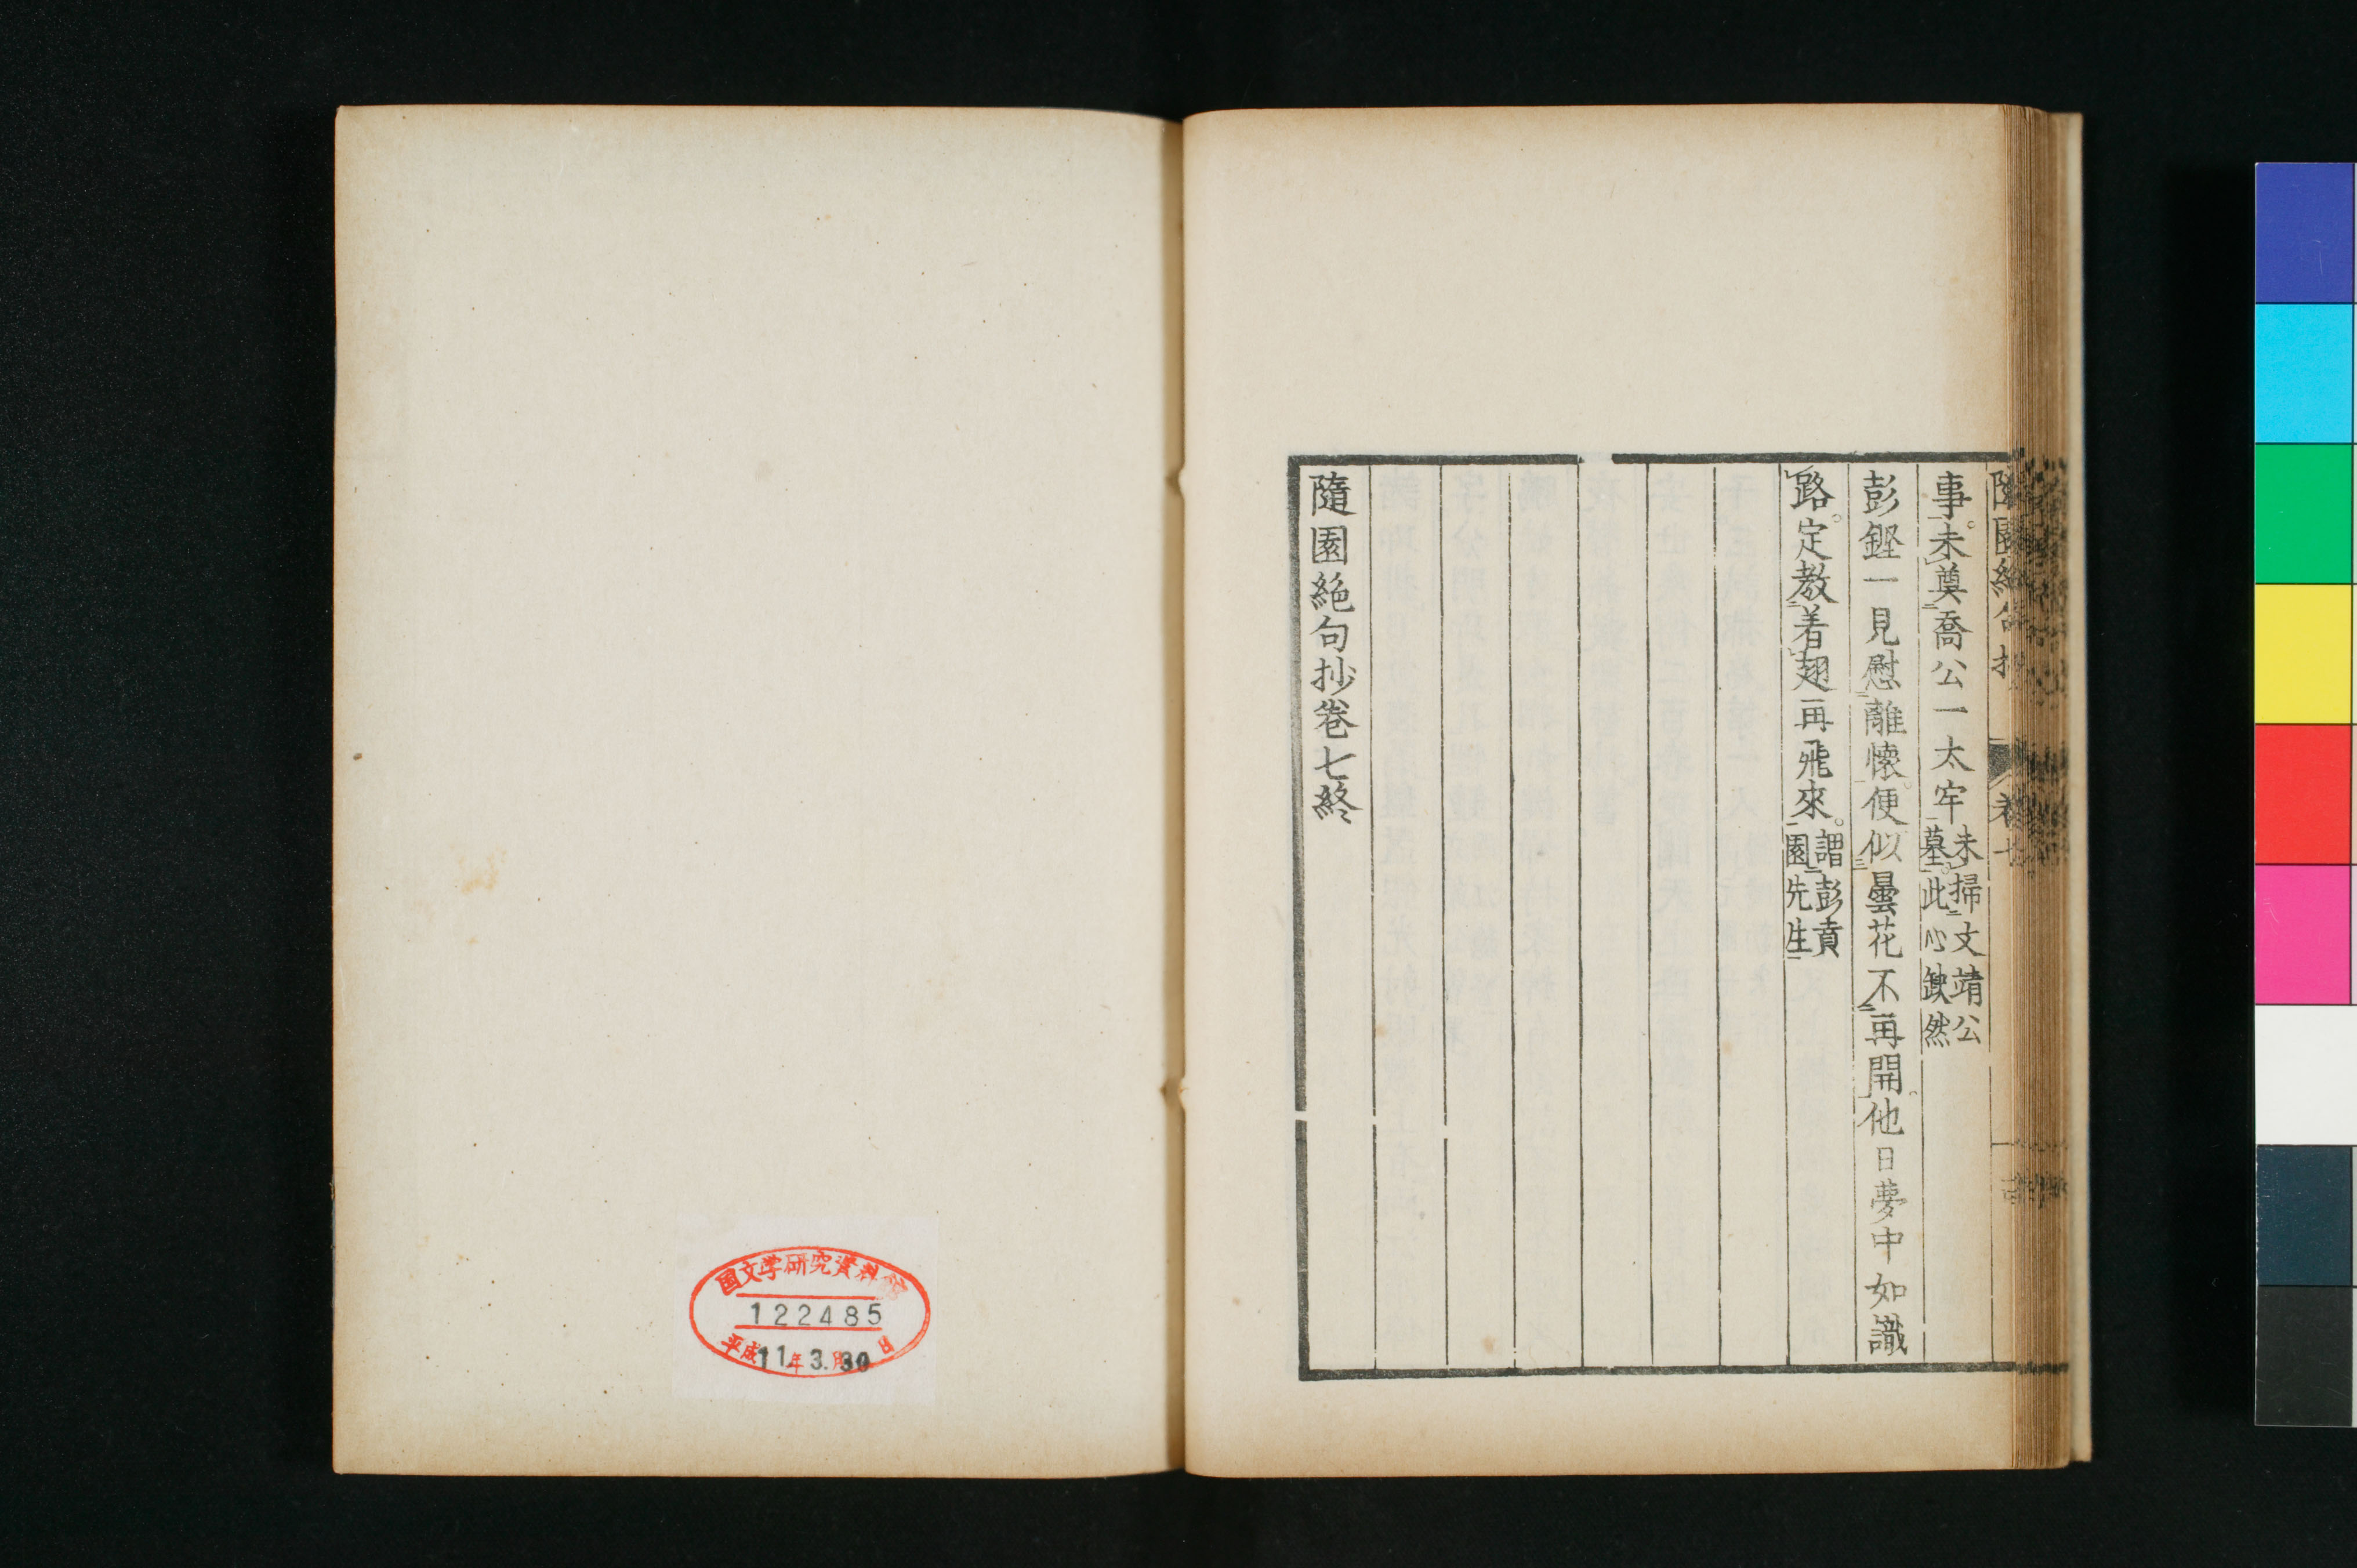 事。未奠喬公一太牢未掃文靖公墓。此心缺然
彭鏗一見慰離懷。便似曇花不再開。他日夢中如識
路。定教着翅再飛來。謂彭賁園先生
隨園絶句抄卷七終
国文学研究資料館
122485
平成11年3.月30日